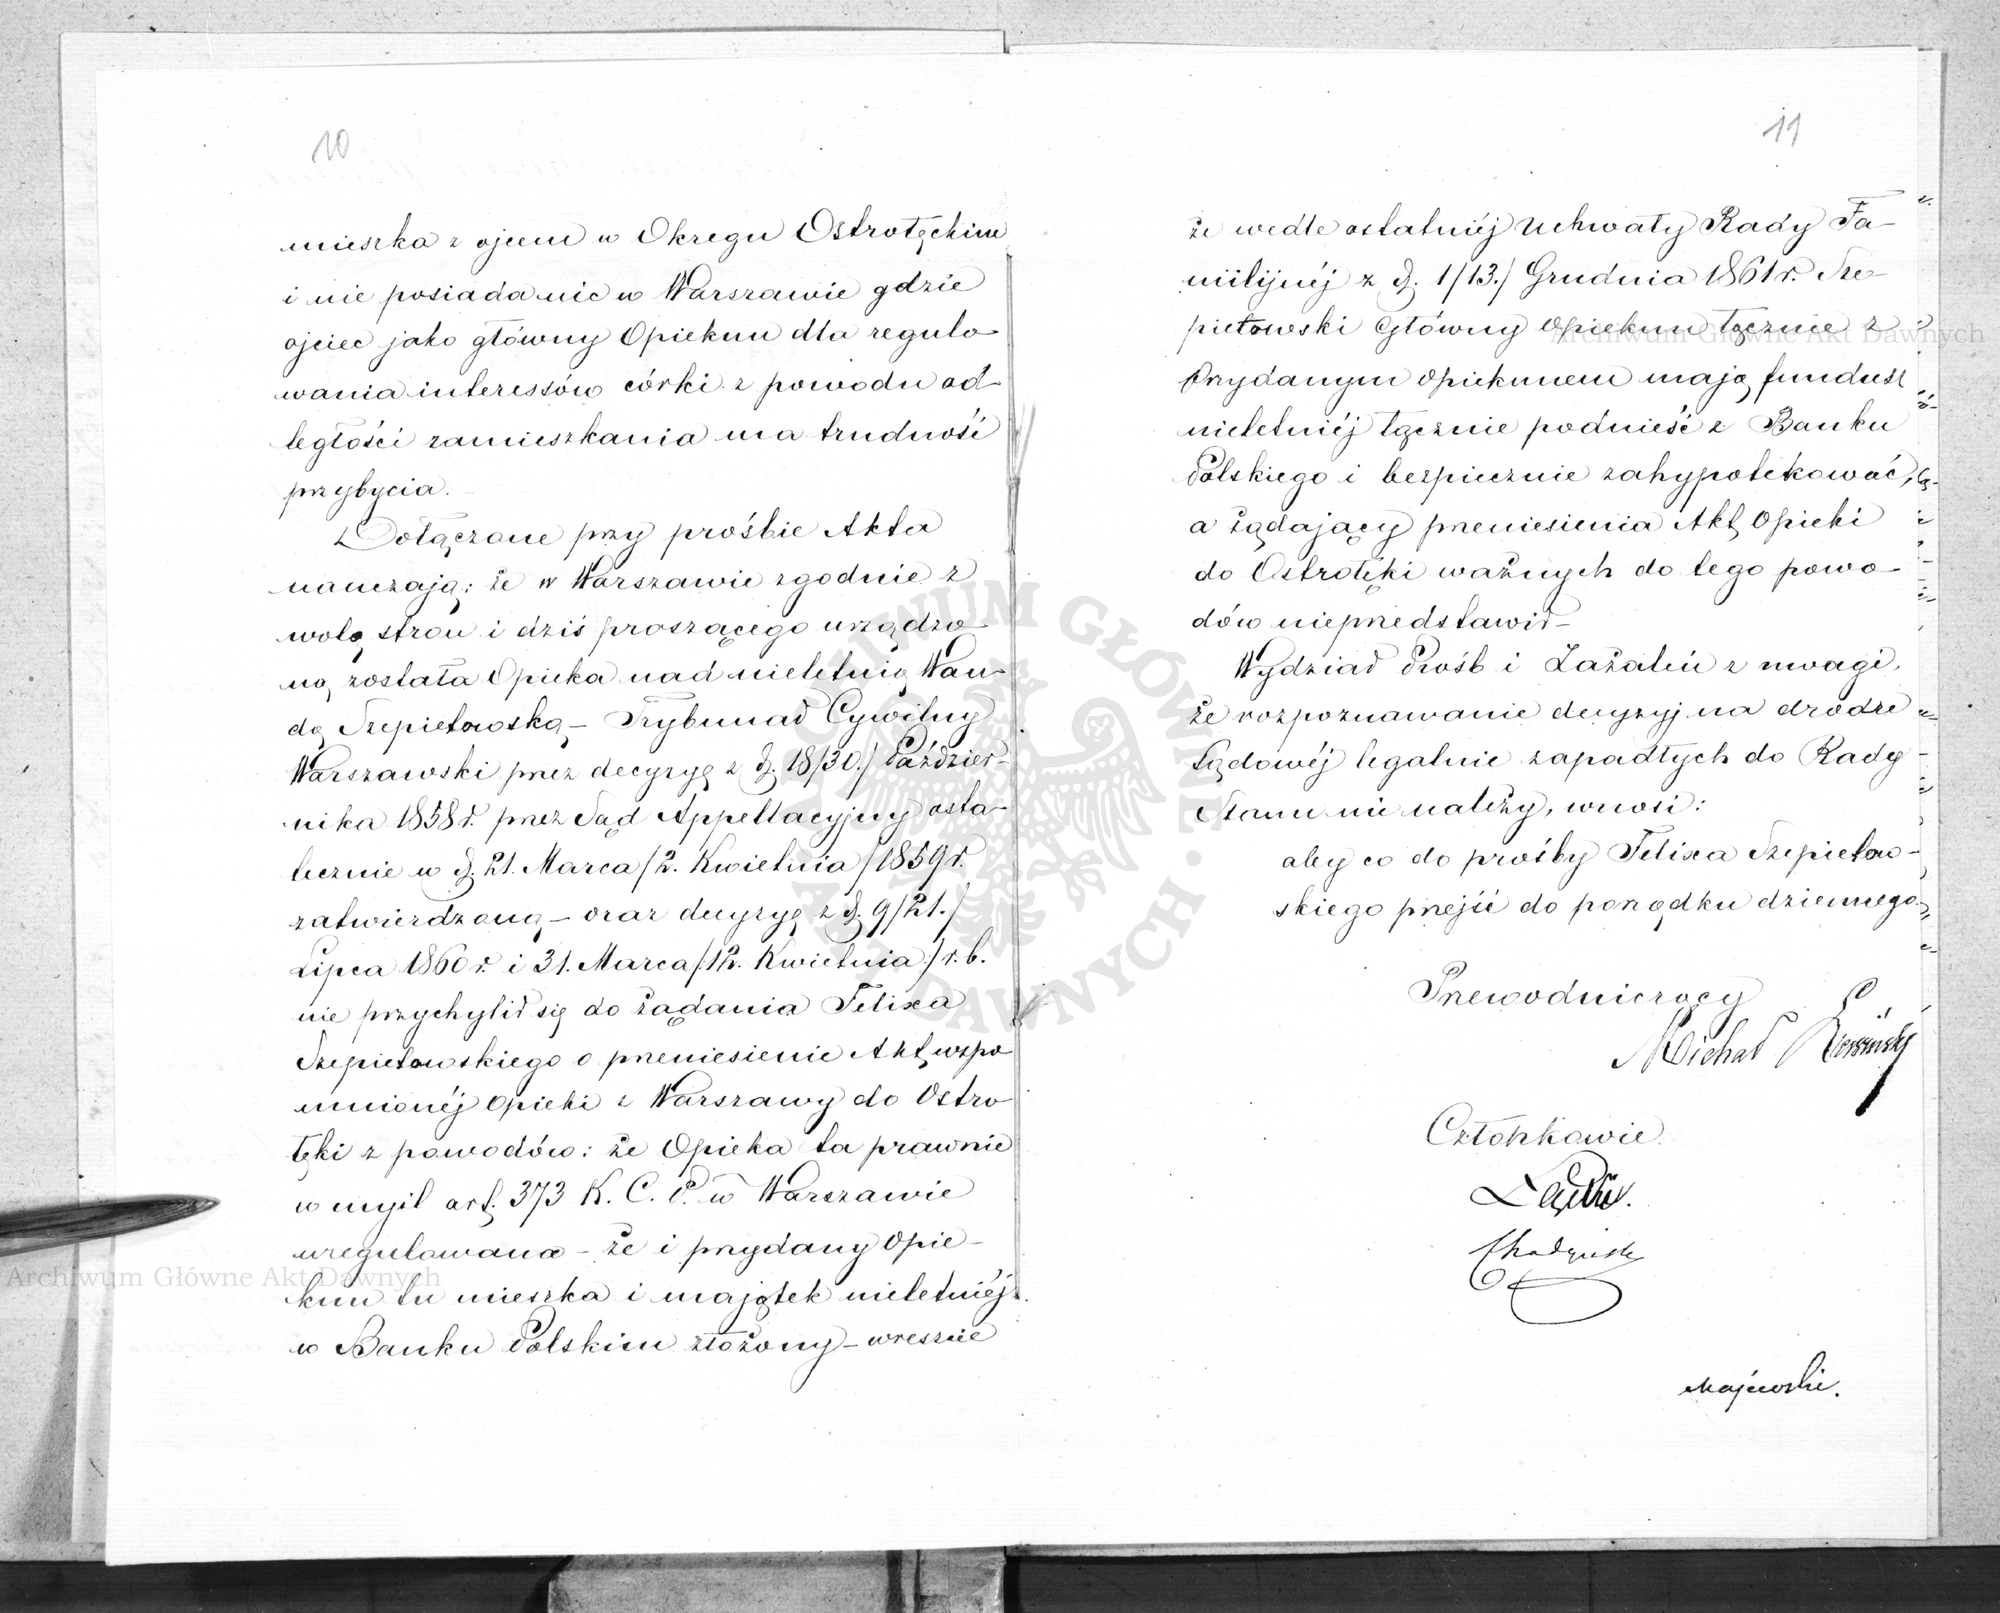 10
mieszka z ojcem w Okręgu Ostrołęckim
i nie posiada nic w Warszawie gdzie
ojciec jako główny Opiekun dla regulo-
wania interessów córki z powodu od-
ległości zamieszkania ma trudność
przybycia.
Dołączone przy prośbie Akta
nauczają: że w Warszawie zgodnie z
wolą stron i dziś proszącego urządzo-
ną została Opieka nad nieletnią Wan-
dą Szepietowską – Trybunał Cywilny
Warszawski przez decyzyę z d. 18/30./ Paździer-
nika 1858 r. przez Sąd Appellacyjny osta-
tecznie w d. 21. Marca /2. Kwietnia/ 1859 r.
zatwierdzoną – oraz decyzyę z d. 9/21./
Lipca 1860 r. i 31. Marca /:12. Kwietnia:/ r. b.
nie przychylił się do żądania Felixa
Szepietowskiego o przeniesienie Akt wspo
mnionéj Opieki z Warszawy do Ostro
łęki z powodów: że Opieka ta prawnie
w myśl art. 373 K. C. P. w Warszawie
uregulowana – że i przydany Opie-
kun tu mieszka i majątek nieletniéj
w Banku Polskim złożony – wreszcie
11
że wedle ostatniéj Uchwały Rady Fa-
milijnéj z d. 1/13./ Grudnia 1861 r. Sze-
pietowski Główny Opiekun łącznie z
Przydanym Opiekunem mają fundusz
nieletniéj łącznie podnieść z Banku
Polskiego i bezpiecznie zahypotekować,
a żądający przeniesienia Akt Opieki
do Ostrołęki ważnych do tego powo-
dów nieprzedstawił –
Wydział Próśb i Zażaleń z uwagi,
że rozpoznawanie decyzyj na drodze
Sądowéj legalnie zapadłych do Rady
Stanu nie należy, wnosi:
aby co do prośby Felixa Szepietow-
skiego przejść do porządku dziennego.
Przewodniczący
Michał
Członkowie
Majewski.
Archiwum Główne Akt Dawnych
Archiwum Główne Akt Dawnych
ARCHIWUM GŁÓWNE • AKT DAWNYCH •